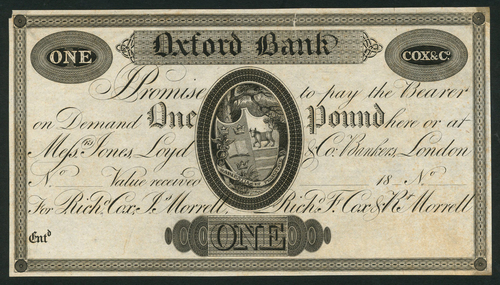 ONE Oxford Bank COX&Co.
I Promise to pay the Bearer
on Demand One Pound here or at
Messrs. Jones Loyd & Co. Bankers, London
No. Value received 18 No.
For Richd. Cox, Js. Morrell, Richd. F. Cox & Rt. Morrell
Entd. ONE